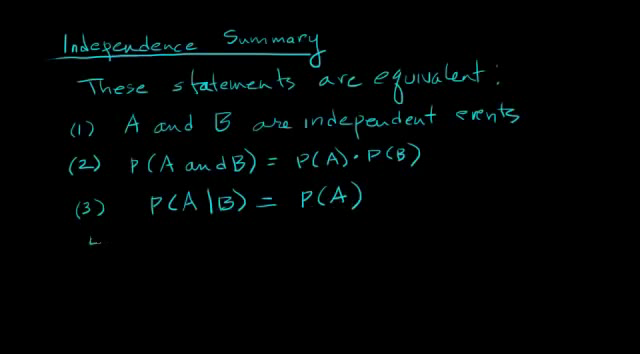 Independence Summary
These statements are equivalent:
(1) A and B are independent events
(2) P(A and B) = P(A) • P(B)
(3) P(A|B) = P(A)